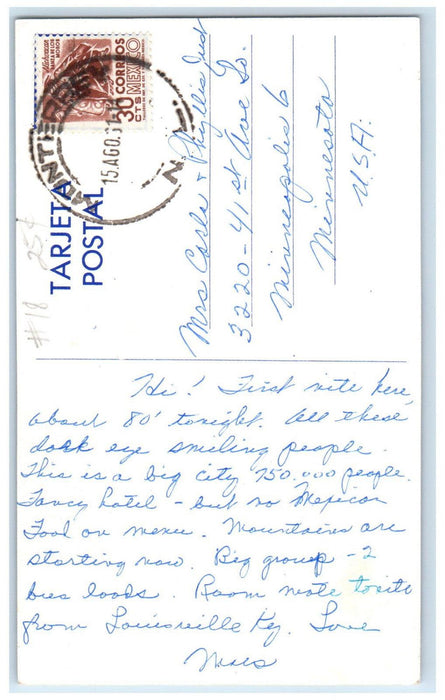 CORREOS
MEXICO
30
CTS
DANZA DE LOS
MONTERREY
15.AGO.
N.L.
TARJETA
POSTAL
#18 25¢
Mrs Carla & Phyllis Just
3220-41st Ave So.
Minneapolis 6
Minnesota
U.S.A.
Hi! First nite here,
about 80° tonight. All these
dark eye smiling people.
This is a big city 750.000 people.
Fancy hotel - but no Mexican
Food on menu. Mountains are
starting now. Big group - 2
bus loads. Room mate tonite
from Louisville Ky. Love